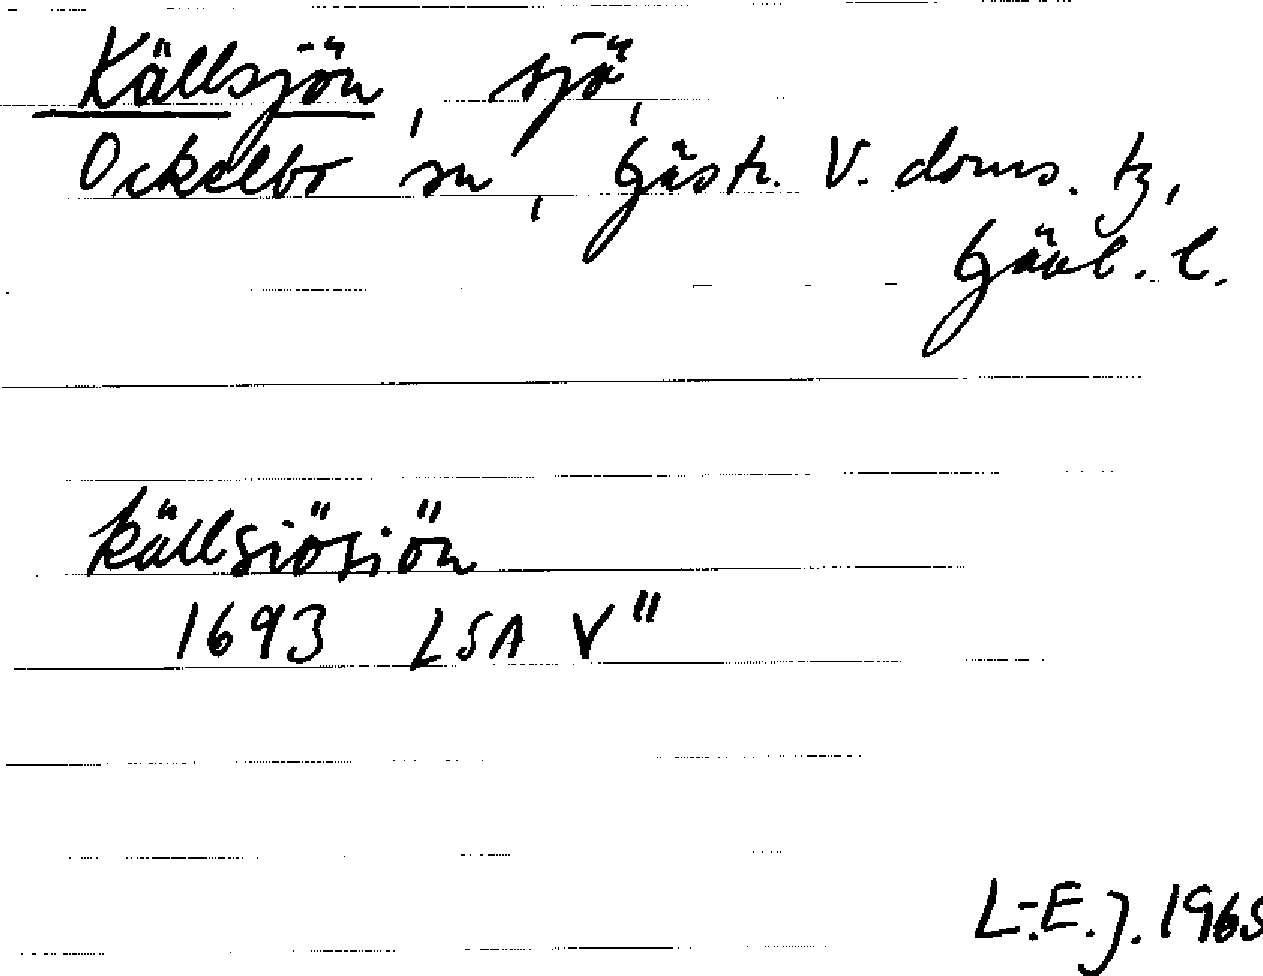 Källsjön, sjö,
Ockelbo sn, Gästr. V. doms. tg,
Gävl. l.
källsiösiön
1693 LSA V"
L.-E. J. 1965